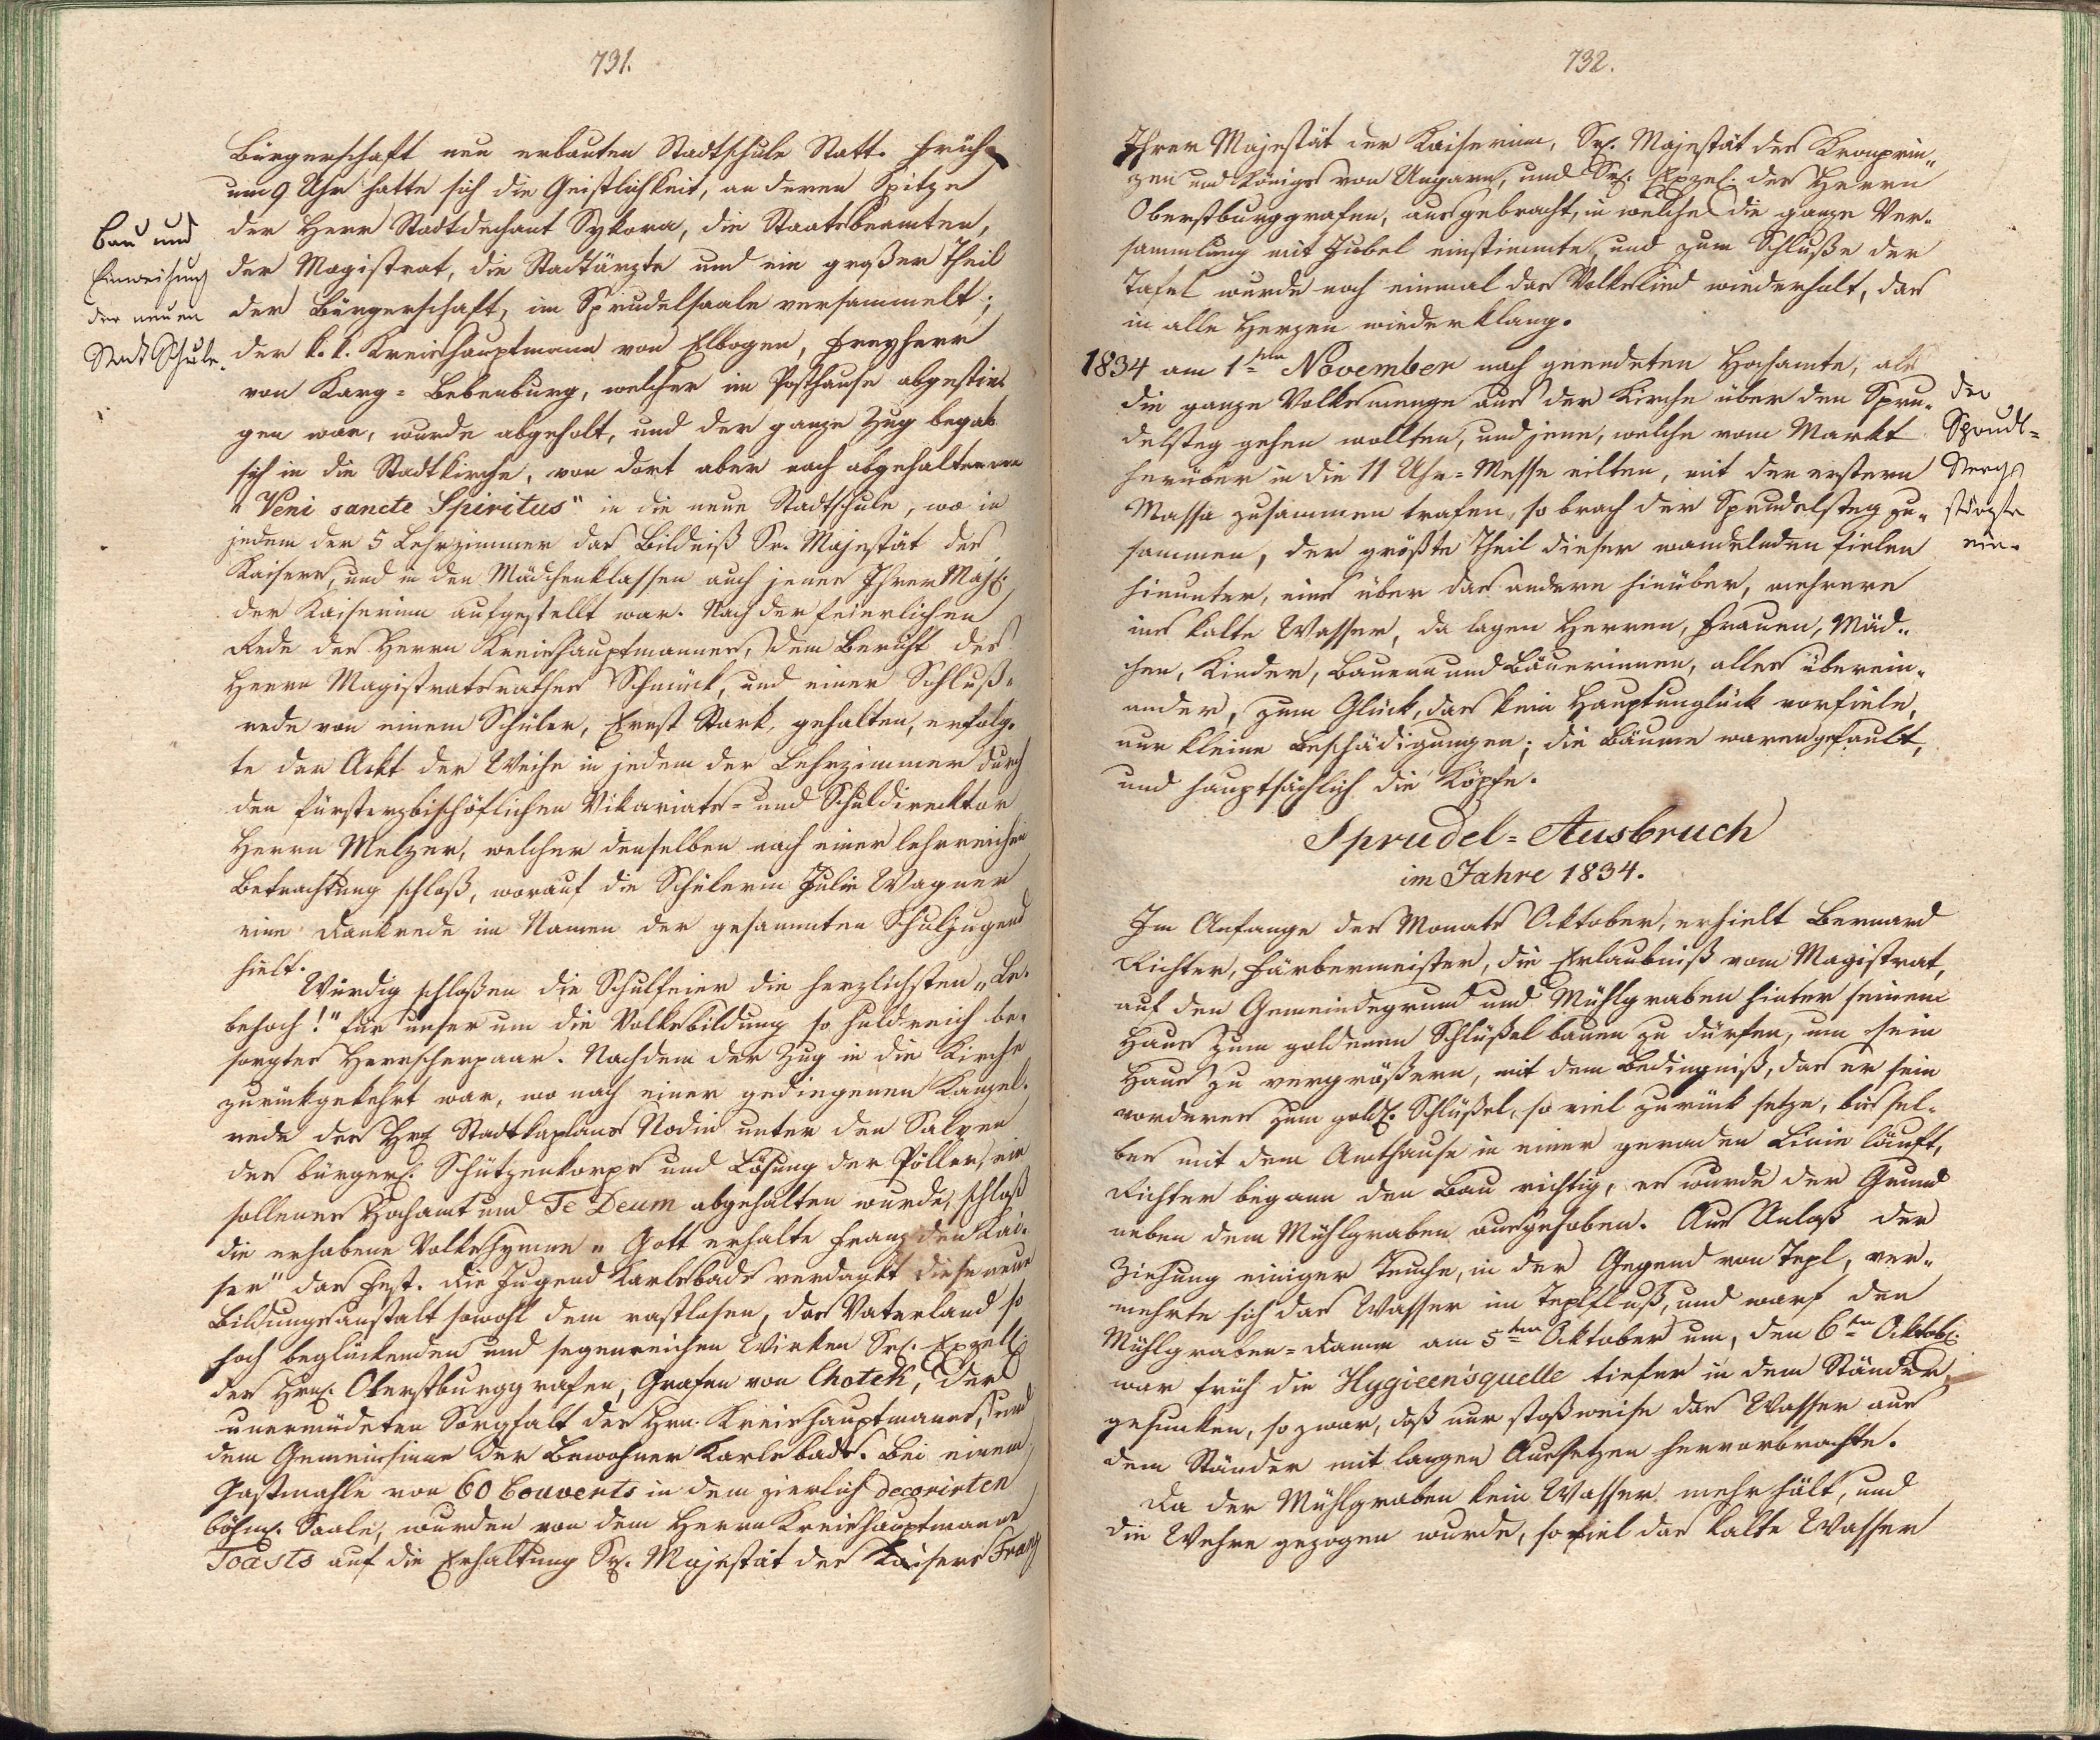 791.
Bürgerschaft neu erbauten Stadtschule Statt. Früh
um 9 Uhr hatte sich die Geistlichkeit, an deren Spitze
der Herr Stadtdechant Sykora, die Staatsbeamten,
der Magistrat, die Stadtärzte und ein großer Theil
der Bürgerschaft, im Sprudelsaale versammelt;
der k. k. Kreishauptmann von Elbogen, Freyherr
von Karg-Bebenburg, welcher im Posthause abgestie-
gen war, wurde abgeholt, und der ganze Zug begab
sich in die Stadtkirche, von dort aber nach abgehaltenem
"Veni sancte Spiritus" in die neue Stadtschule, wo in
jedem der 5 Lehrzimmer das Bildniß Sr. Majestät des
Kaisers, und in den Mädchenklassen auch jenes Ihrer Maj.
der Kaiserinn aufgestellt war. Nach der feierlichen
Rede des Herrn Kreishauptmannes, dem Bericht des
Herrn Magistratsrathes Schmück, und einer Schluß-
rede von einem Schüler, Ernst Stark, gehalten, erfolg-
te der Ackt der Weihe in jedem der Lehrzimmer durch
den fürsterzbischöflichen Vikariats- und Schuldirecktor
Herrn Melzer, welcher denselben nach einer lehrreichen
Betrachtung schloß, worauf die Schülerin Julie Wagner
eine Dankrede im Namen der gesammten Schuljugend
hielt.
Würdig schloßen die Schulfeier die herzlichsten „Le-
behoch!" für unser um die Volksbildung so huldreich be-
sorgtes Herrscherpaar. Nachdem der Zug in die Kirche
zurückgekehrt war, wo nach einer gediegenen Kanzel-
rede des Hr. Stadtkaplans Nodin unter den Salven
des bürgerl. Schützenkorps und Lösung der Pöller, ein
sollenes Hochamt und Te Deum abgehalten wurde, schloß
die erhabene Volkshymne „Gott erhalte Franz den Kai-
ser" das Fest. Die Jugend Karlsbads verdankt diese neue
Bildungsanstalt sowohl dem rastlosen, das Vaterland so
hoch beglückenden und segenreichen Wirken Sr. Exzell.
des Hrn. Oberstburggrafen, Grafen von Chotek, der
unermüdeten Sorgfalt des Hrn. Kreishauptmanns, und
dem Gemeinsinne der Bewohner Karlsbads. Bei einem
Gastmahle von 60 Couverts in dem zierlich decorirten
böhm. Saale, wurden von dem Herrn Kreishauptmanne
Toasts auf die Erhaltung Sr. Majestät des Kaisers Franz
Bau und
Einweihung
der neuen
Stadt Schule.
792.
Ihrer Majestät der Kaiserinn, Sr. Majestät des Kronprin-
zen und Königs von Ungarn, und Sr. Exzel. des Herrn
Oberstburggrafen, ausgebracht, in welche die ganze Ver-
sammlung mit Jubel einstimmte, und zum Schluße der
Tafel wurde noch einmal das Volkslied wiederholt, das
in alle Herzen wiederklang.
1834 am 1ten November nach geendeten Hochamte, als
die ganze Volksmenge aus der Kirche über den Spru-
delsteg gehen wollten, und jene, welche vom Markt
herüber in die 11 Uhr-Messe eilten, mit der erstern
Massa zusammen trafen, so brach der Sprudelsteg zu-
sammen, der größte Theil dieser wandelnden fielen
hinunter, eins über das andere hinüber, mehrere
ins kalte Wasser, da lagen Herren, Frauen, Mäd-
chen, Kinder, Bauern und Bäuerinnen, alles überein-
ander, zum Glück, das kein Hauptunglück vorfiele,
nur kleine Beschädigungen; die Bäume waren gefault,
und hauptsächlich die Köpfe.
der
Sprudl-
Steg
stürzte
ein.
Sprudel-Ausbruch
im Jahre 1834.
Im Anfange des Monats Oktober, erhielt Bernard
Richter, Färbermeister, die Erlaubniß vom Magistrat,
auf den Gemeindegrund und Mühlgraben hinter seinem
Haus zum goldenen Schlüßel bauen zu dürfen, um sein
Haus zu vergrößern, mit dem Bedingniß, das er sein
vorderes zum gold. Schlüßel, so viel zurück setze, bis sel-
bes mit dem Amthause in einer geraden Linie läuft,
Richter begann den Bau richtig, es wurde der Grund
neben dem Mühlgraben ausgehoben. Aus Anlaß der
Ziehung einiger Teuche, in der Gegend von Tepl, ver-
mehrte sich das Wasser im Teplfluß, und warf den
Mühlgraben-Damm am 5ten Oktober um, den 6ten Oktob.
war früh die Hygieensquelle tiefer in dem Ständer
gesunken, so zwar, daß nur stoßweise das Wasser aus
dem Ständer mit langen Aussetzen hervorbrachte.
Da der Mühlgraben kein Wasser mehr hält, und
die Wehre gezogen wurde, so fiel das kalte Wasser